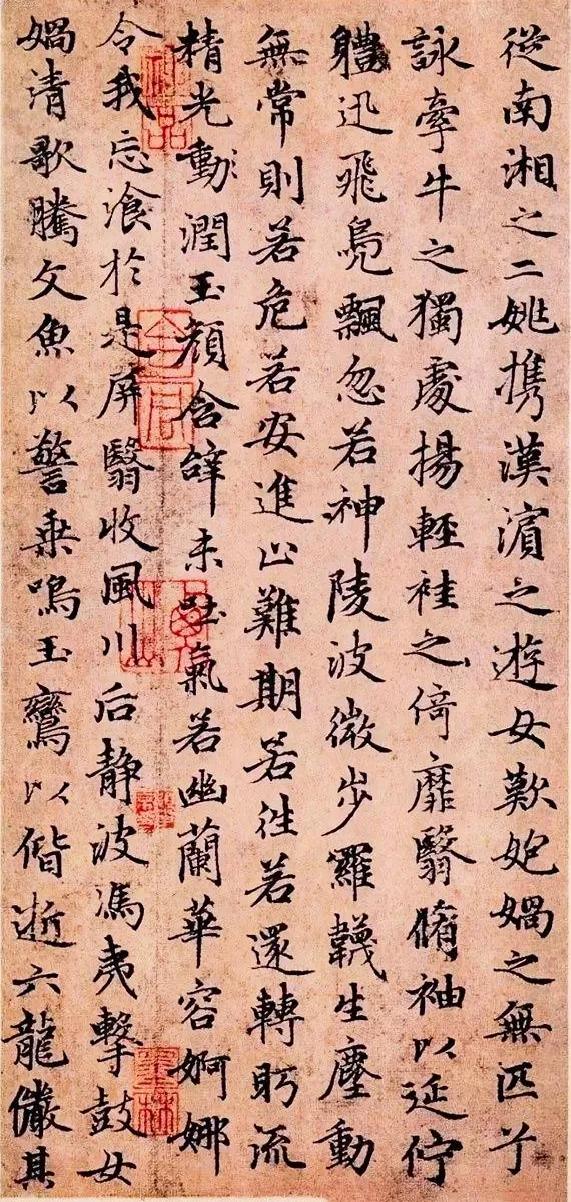 從南湘之二姚攜漢濱之遊女歎妑媧之無匹兮
詠牽牛之獨處揚輕袿之倚靡翳脩袖以延佇
軆迅飛鳧飄忽若神陵波微步羅韈生塵動
無常則若危若安進止難期若往若還轉眄流
精光動潤玉顏含辭未吐氣若幽蘭華容婀娜
令我忘飡於是屏翳收風川后静波馮夷擊鼓女
媧清歌騰文魚以警乗鳴玉鸞以偕逝六龍儼其